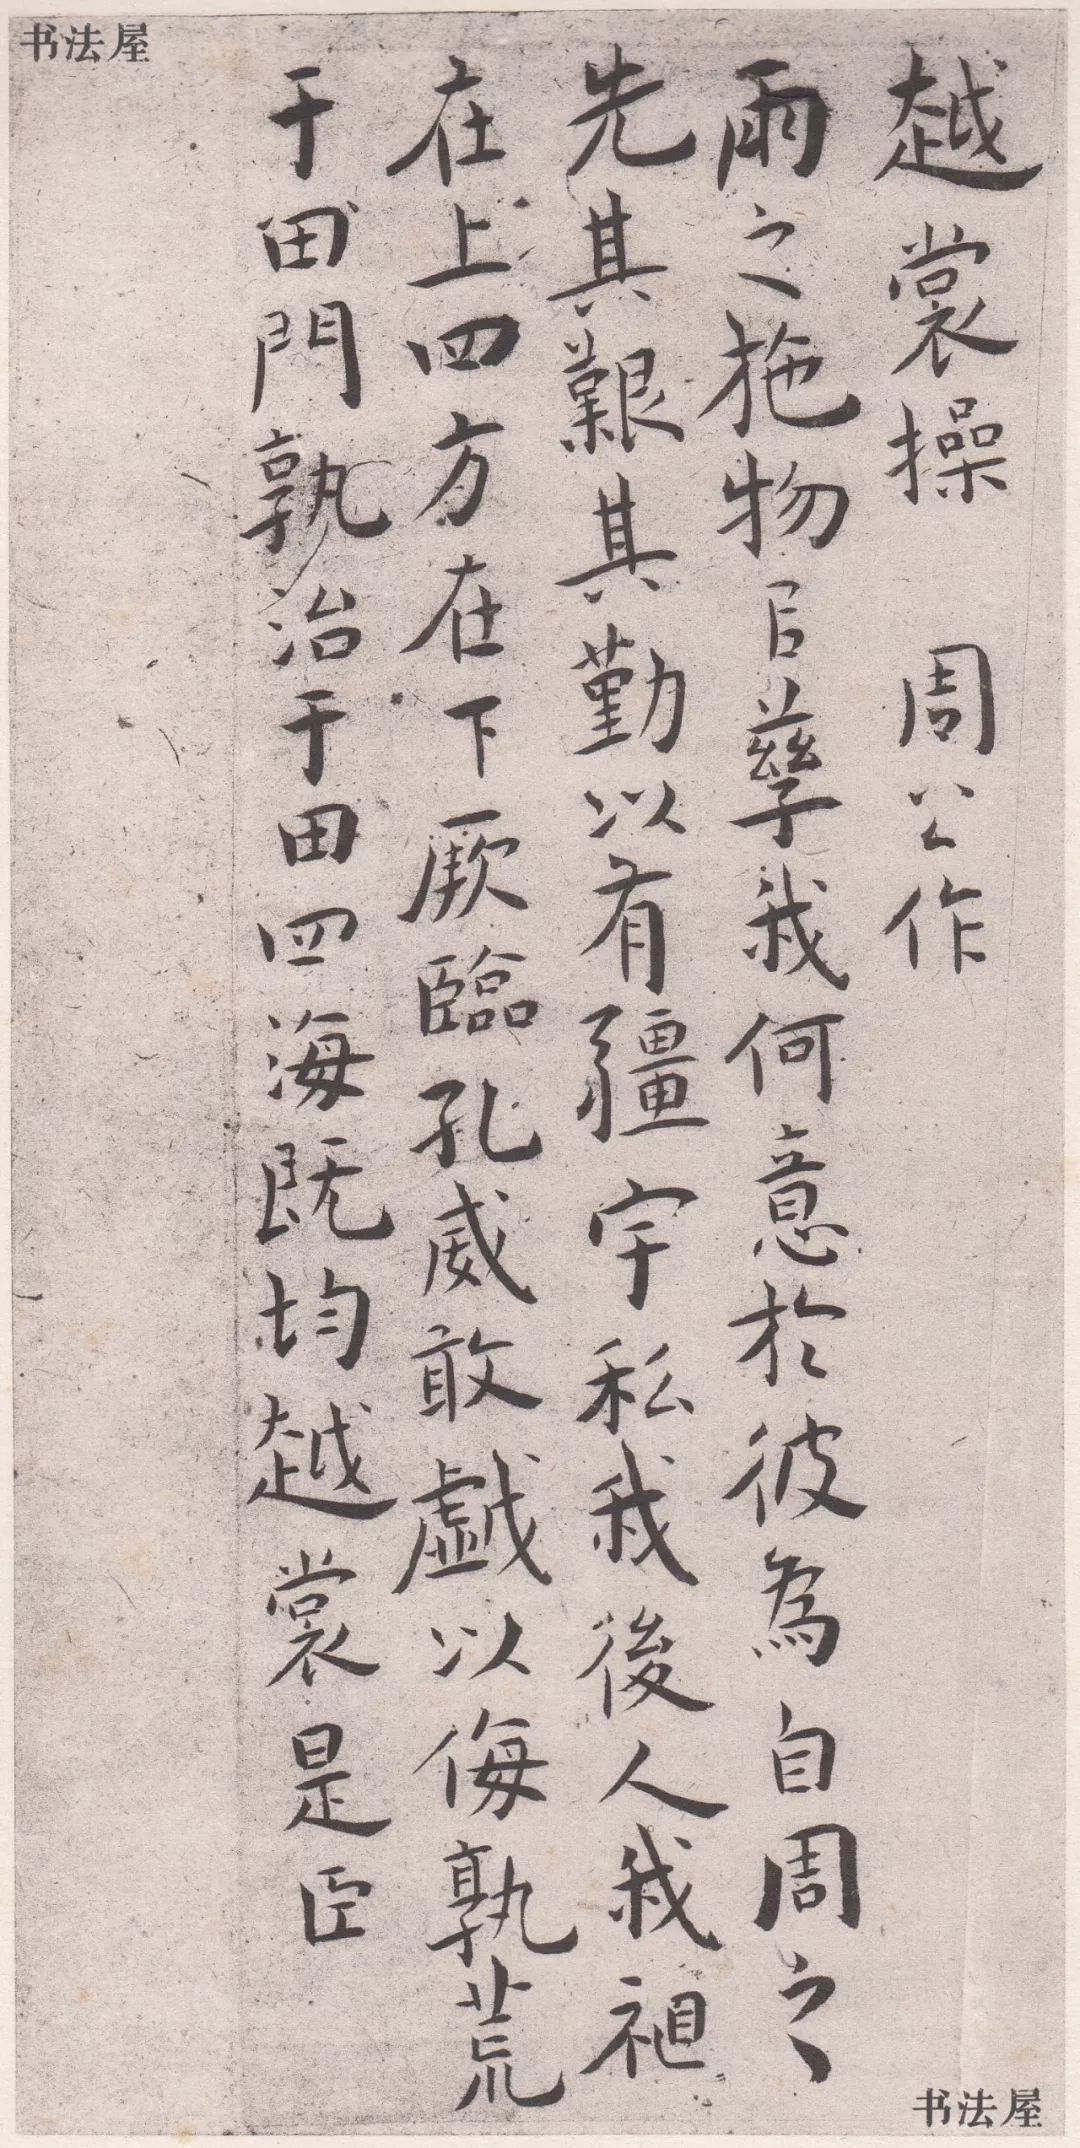 书法屋
越裳操 周公作
雨之施物㠯孳我何意於彼為自周之
先其艱其勤以有疆宇私我後人我祖
在上四方在下厥臨孔威敢戲以侮孰荒
于田門孰治于田四海既均越裳是臣
书法屋